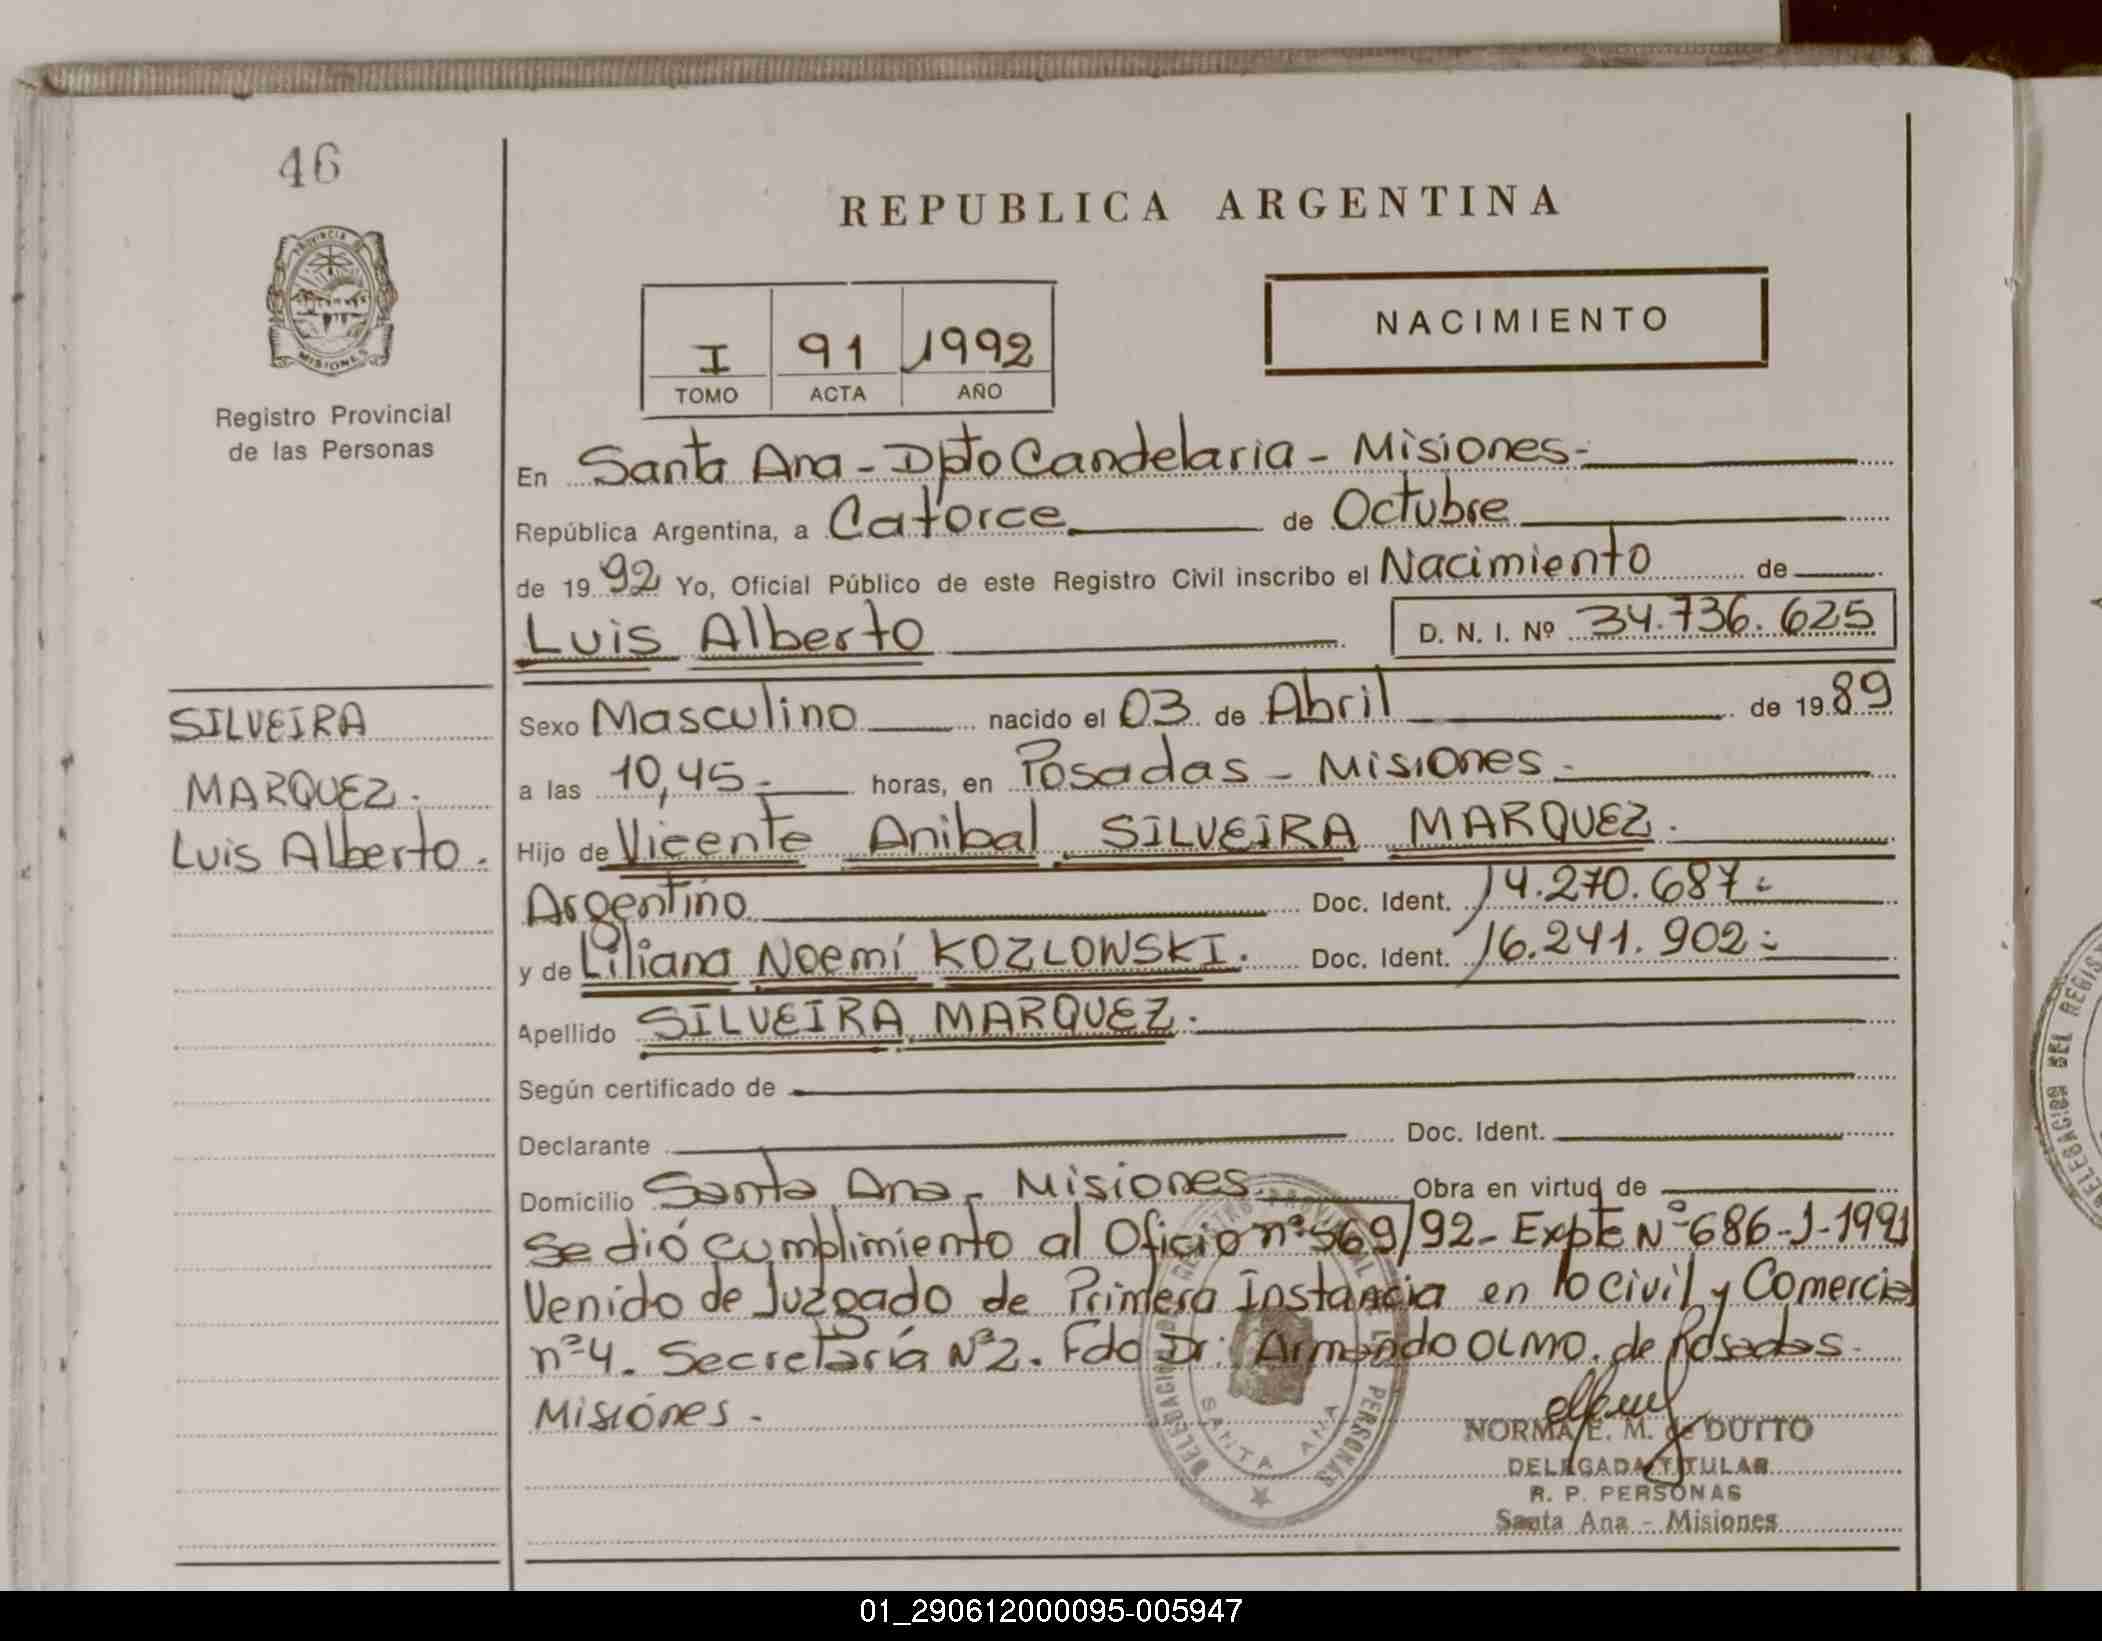 46
PROVINCIA DE
MISIONES
Registro Provincial
de las Personas
REPUBLICA ARGENTINA
I 91 1992
TOMO ACTA AÑO
NACIMIENTO
En Santa Ana - Dpto Candelaria - Misiones-
República Argentina, a Catorce de Octubre
de 19 92 Yo, Oficial Público de este Registro Civil inscribo el Nacimiento de
Luis Alberto D. N. I. Nº 34.736.625
SILVEIRA
MARQUEZ.
Luis Alberto.
Sexo Masculino nacido el 03 de Abril de 19 89
a las 10,45- horas, en Posadas - Misiones -
Hijo de Vicente Anibal SILVEIRA MARQUEZ.
Argentino Doc. Ident. 14.270.687-
y de Liliana Noemí KOZLOWSKI. Doc. Ident. 16.241.902-
Apellido SILVEIRA MARQUEZ.
Según certificado de
Declarante Doc. Ident.
Domicilio Santa Ana - Misiones Obra en virtud de
Se dió cumplimiento al Oficio nº 569/92- Expte Nº 686-J-1991
Venido de Juzgado de Primera Instancia en lo Civil y Comercial
nº 4. Secretaría Nº 2. Fdo Dr. Armando OLMO. de Posadas
Misiónes -
DELEGACION DEL REGISTRO PROVINCIAL DE LAS PERSONAS
SANTA ANA
NORMA E. M. de DUTTO
DELEGADA TITULAR
R. P. PERSONAS
Santa Ana - Misiones
DELEGACION DEL REGIS
01_290612000095-005947